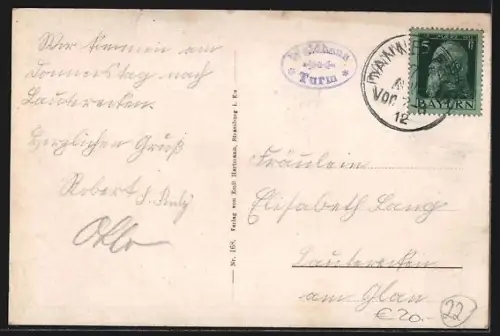 Wir kommen am
Donnerstag nach
Lauterecken.
Herzlichen Gruß
Robert
Otto
Waldhaus
Turm
Nr. 168. Verlag von Emil Hartmann, Strassburg i. Els
5
BAYERN
VOR
12
Fräulein
Elisabeth Lang
Lauterecken
am Glan
€ 20.-
22